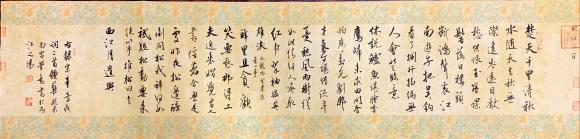 楚天千里清秋
水隨天去秋無
際遙岑遠目獻
愁供恨玉簪螺
髻落日樓頭
斷鴻聲裏江
南遊子把吳鈎
看了欄干拍遍無
人會登臨意
休説鱸魚堪膾季
鷹歸未求田問舍
怕應羞見劉郎
才氣可惜流年
憂愁風雨樹猶
如此倩何人喚取
紅巾翠袖揾英
雄淚
醉裏且貪歡
笑要愁那得工
夫近來始覺古人
書信著全無是
處昨夜松邊醉
倒問松我醉何如
祇疑松動要來
扶以手推松曰去
西江月遣興
右録宋辛棄疾
詞二首